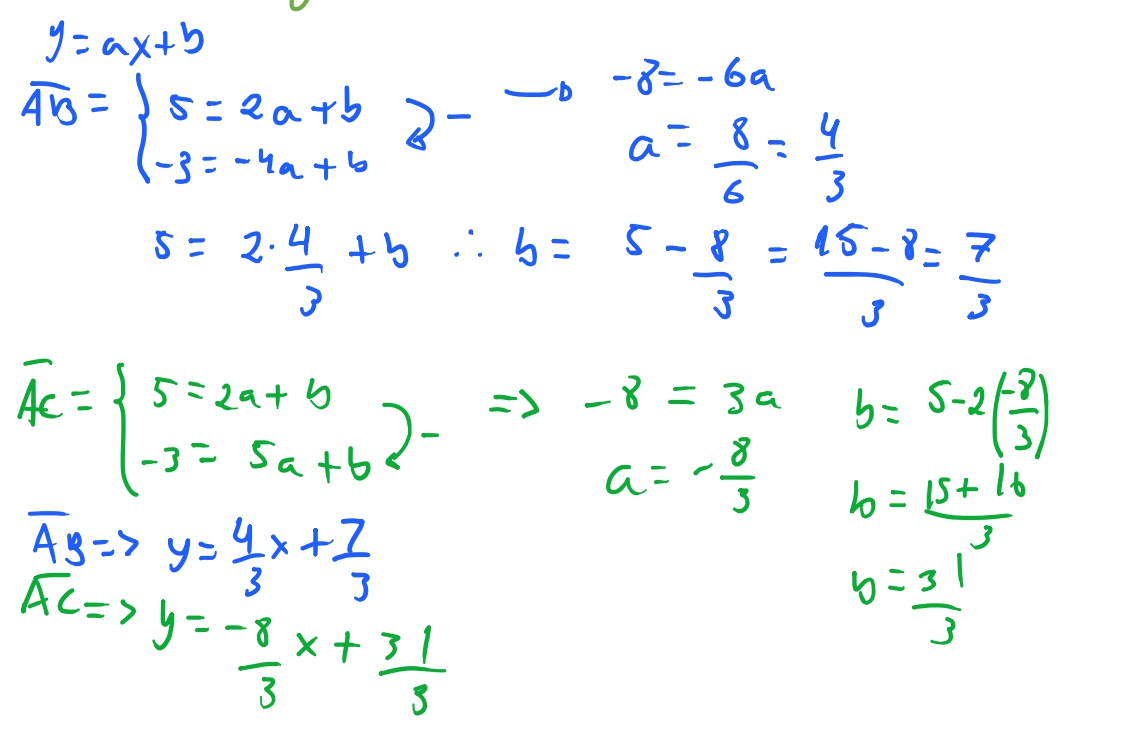 y = ax + b
AB = { 5 = 2a + b
-3 = -4a + b
-
→ -8 = -6a
a = 8/6 = 4/3
5 = 2·4/3 + b ∴ b = 5 - 8/3 = (15 - 8)/3 = 7/3
AC = { 5 = 2a + b
-3 = 5a + b
-
=> -8 = 3a
a = -8/3
b = 5 - 2(-8/3)
b = (15 + 16)/3
b = 31/3
AB => y = 4/3 x + 7/3
AC => y = -8/3 x + 31/3